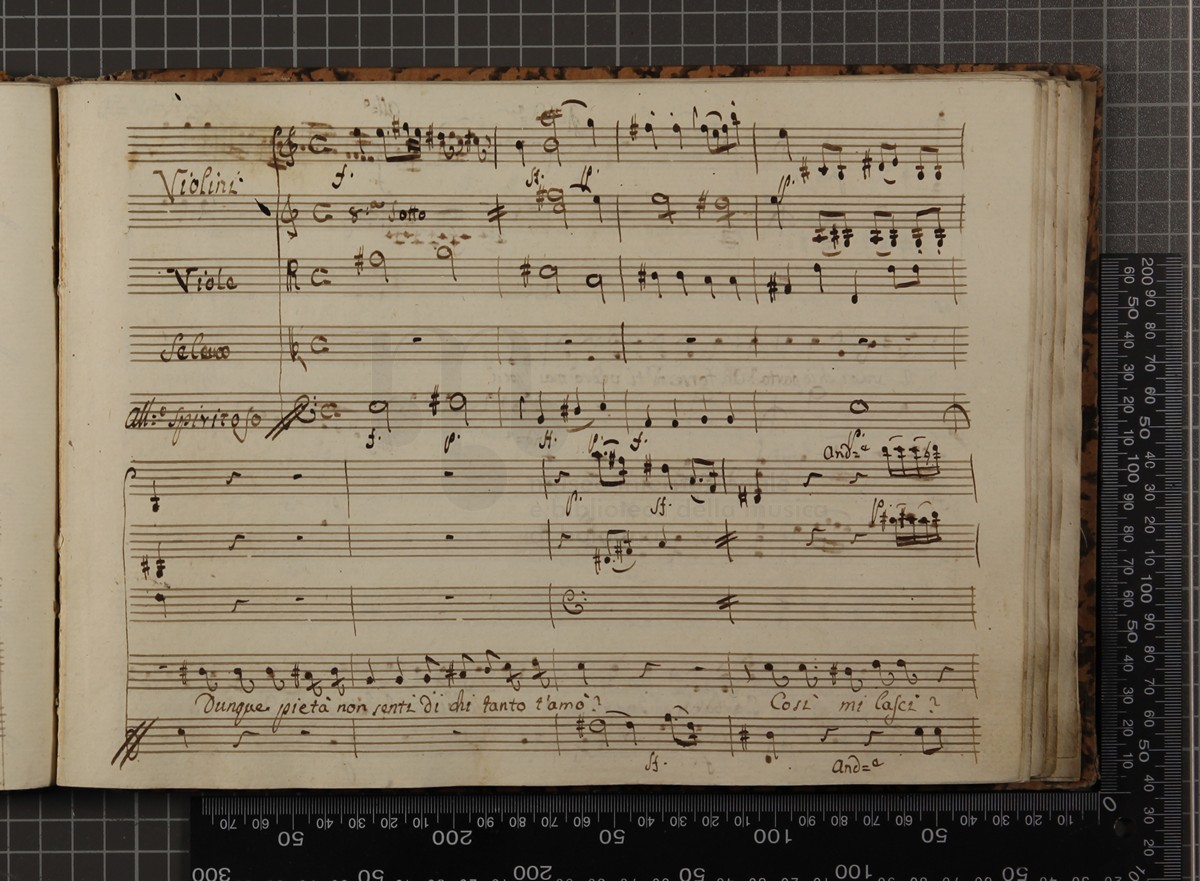 Violini
f.
sf. p.
p.
8.va Sotto
Viole
Seleuco
All:º Spiritoso
f. p. sf. p. f. p.
And=e
p. sf.
p.
Dunque pietà non senti di chi tanto t'amò? Così mi lasci?
sf. And=e